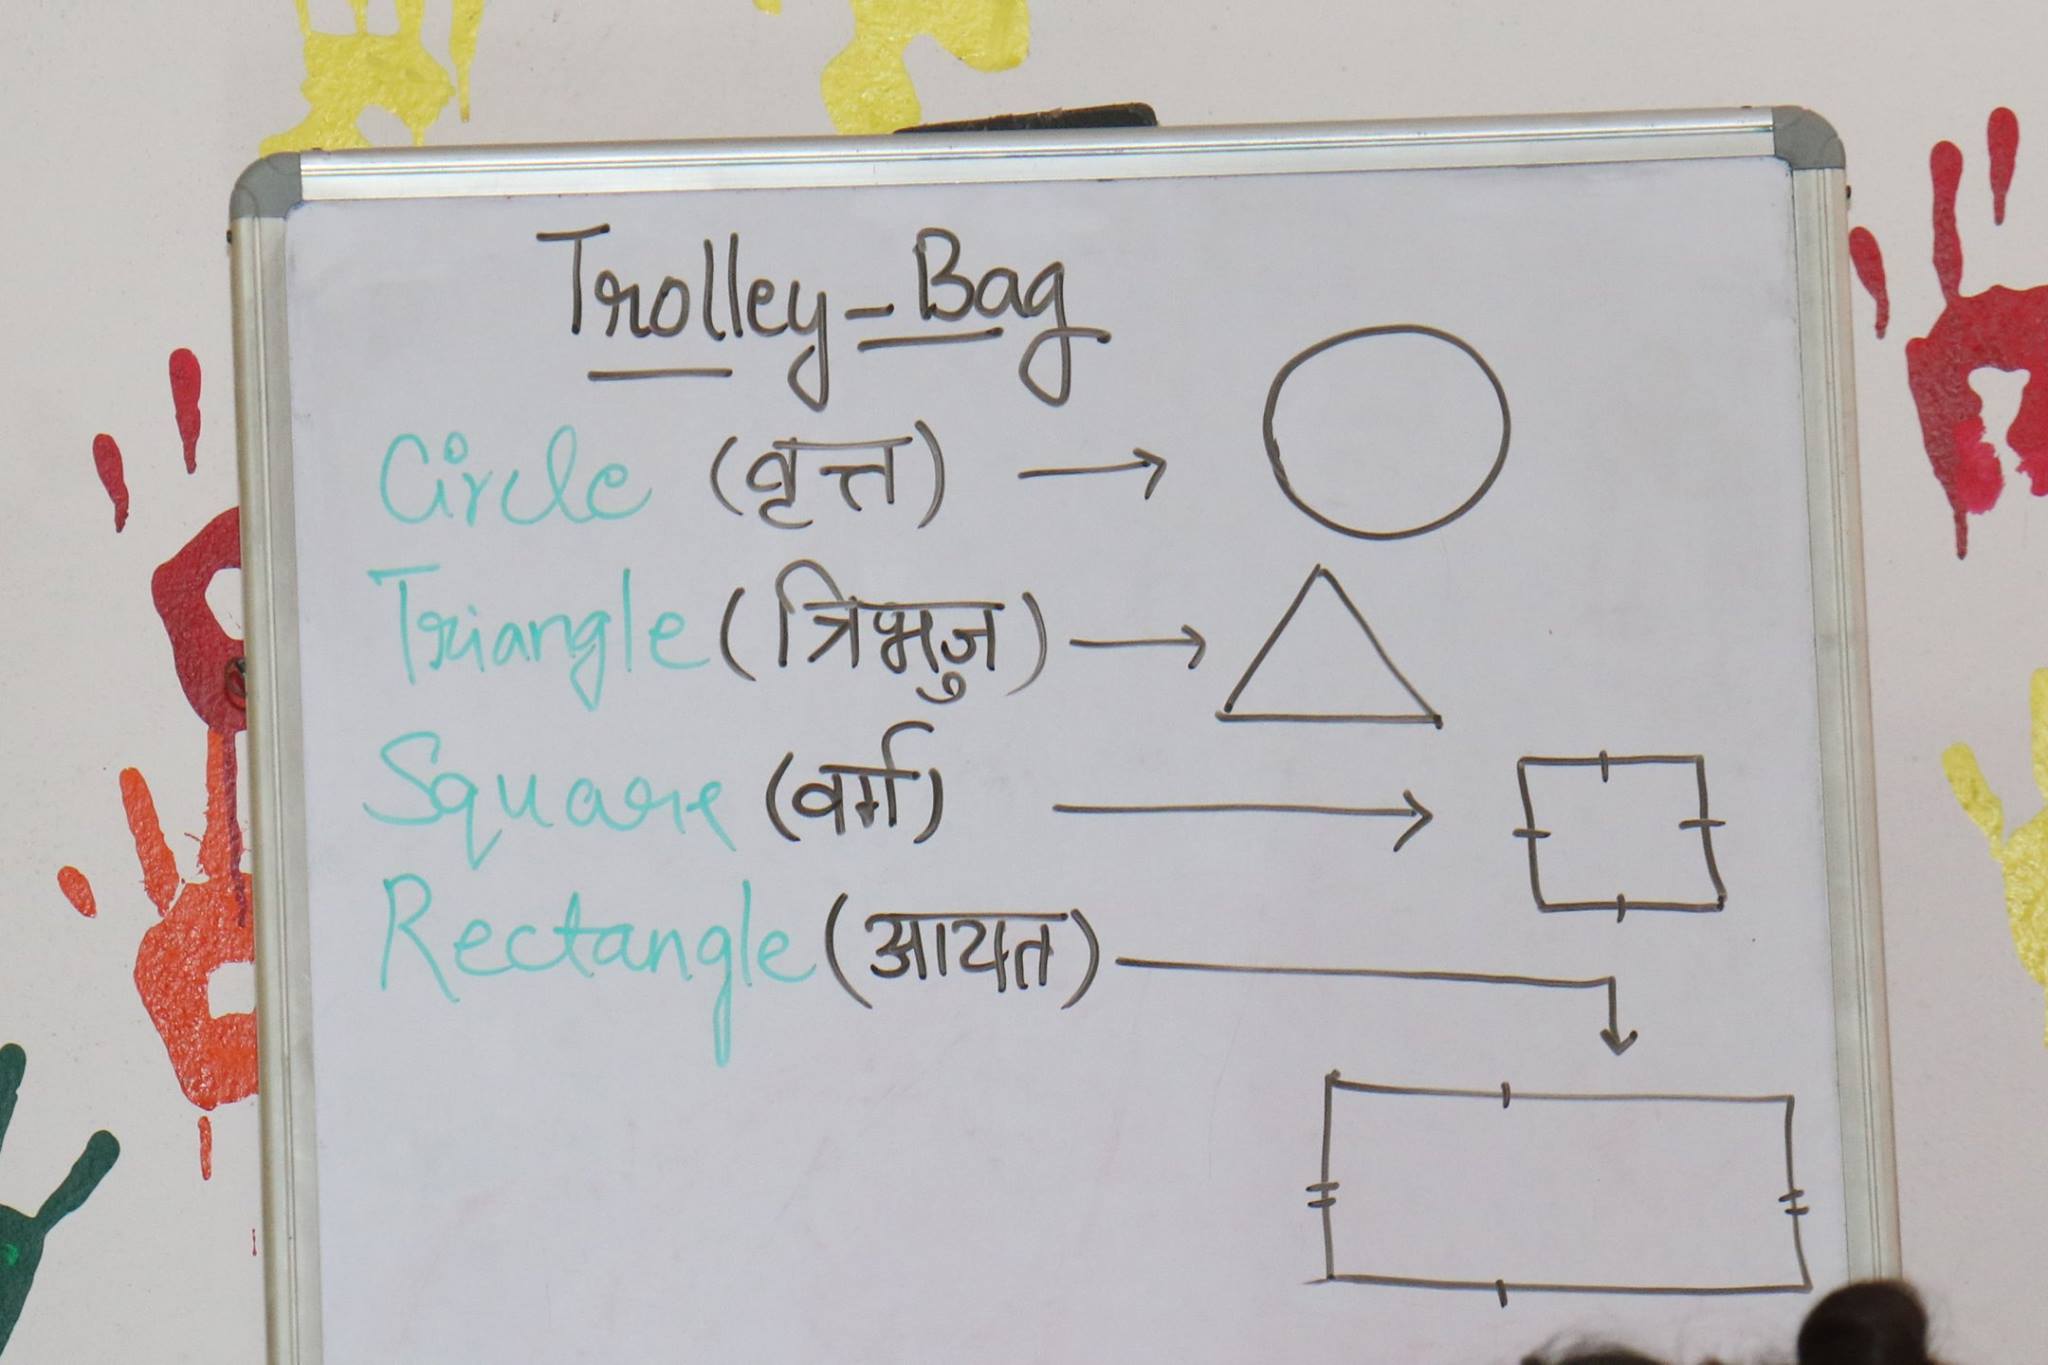 Trolley-Bag
Circle (वृत्त) →
Triangle (त्रिभुज) →
Square (वर्ग) →
Rectangle (आयत)